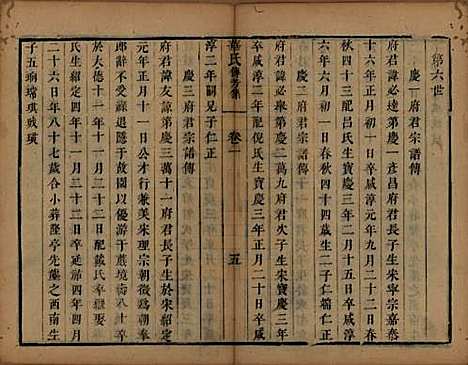 第六世
慶一府君宗譜傳
府君諱必達第慶一彥昌府君長子生宋寧宗嘉泰
四年正月初一日卒咸淳元年九月二十二日春
秋四十三配呂氏生寶慶三年二月十五日卒咸淳
六年六月初一日春秋四十四歲生二子仁範仁正
慶二府君宗譜傳
府君諱必舉第慶二萬九府君次子生宋寶慶三年
卒咸淳二年配倪氏生寶慶三年正月二十日卒咸
華氏傳芳集
卷二
五
淳二年嗣兄子仁正
慶三府君宗譜傳
府君諱友諒第慶三萬十一府君長子生於宋紹定
元年正月十一日公才行兼美宋理宗朝徵爲承奉
郎辭不赴故園以優游于蔵境街八十卒
於大德十一年十一月二十二日配戴氏卒
民生紹定三年二月二十二日卒延祐四年四月
二十六日年八十七歲合葬隆亭先塋之西南生
子五珦瑞琪珹璜